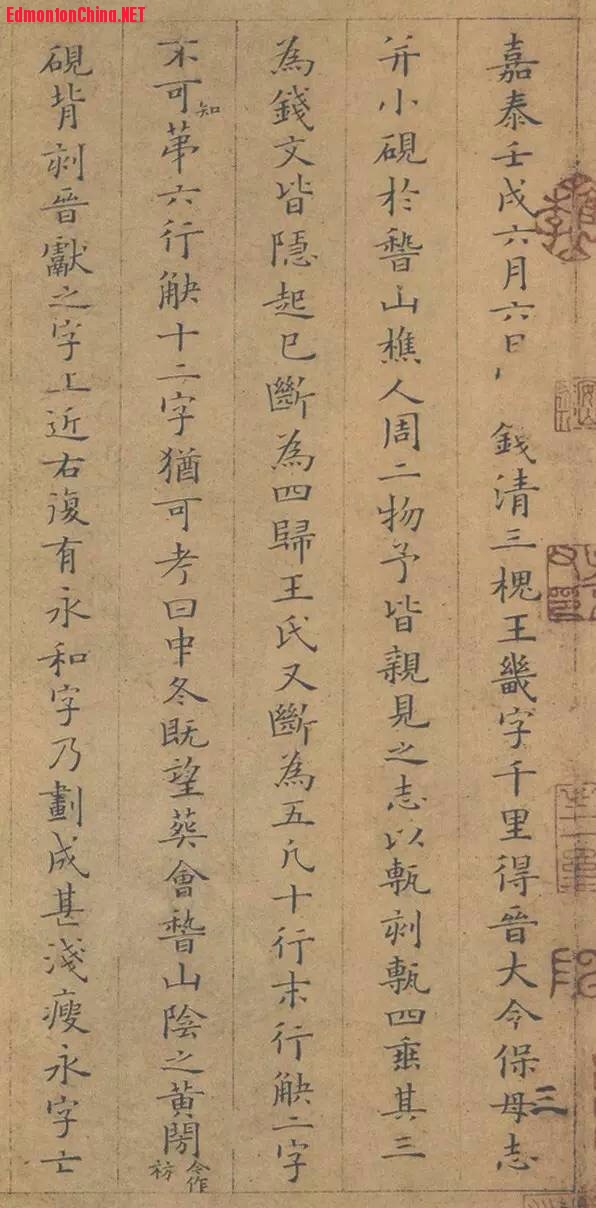 EdmontonChina.NET
嘉泰壬戌六月六日 錢清三槐王畿字千里得晉大令保母志
三
并小硯於稽山樵人周二物予皆親見之志以甎刻甎四垂其三
為錢文皆隱起已斷為四歸王氏又斷為五凢十行末行觖二字
不可知苐六行觖十二字猶可考曰中冬既望葬會稽山陰之黃閍今作祊
硯背刻晉獻之字上近右復有永和字乃劃成甚淺瘦永字亡